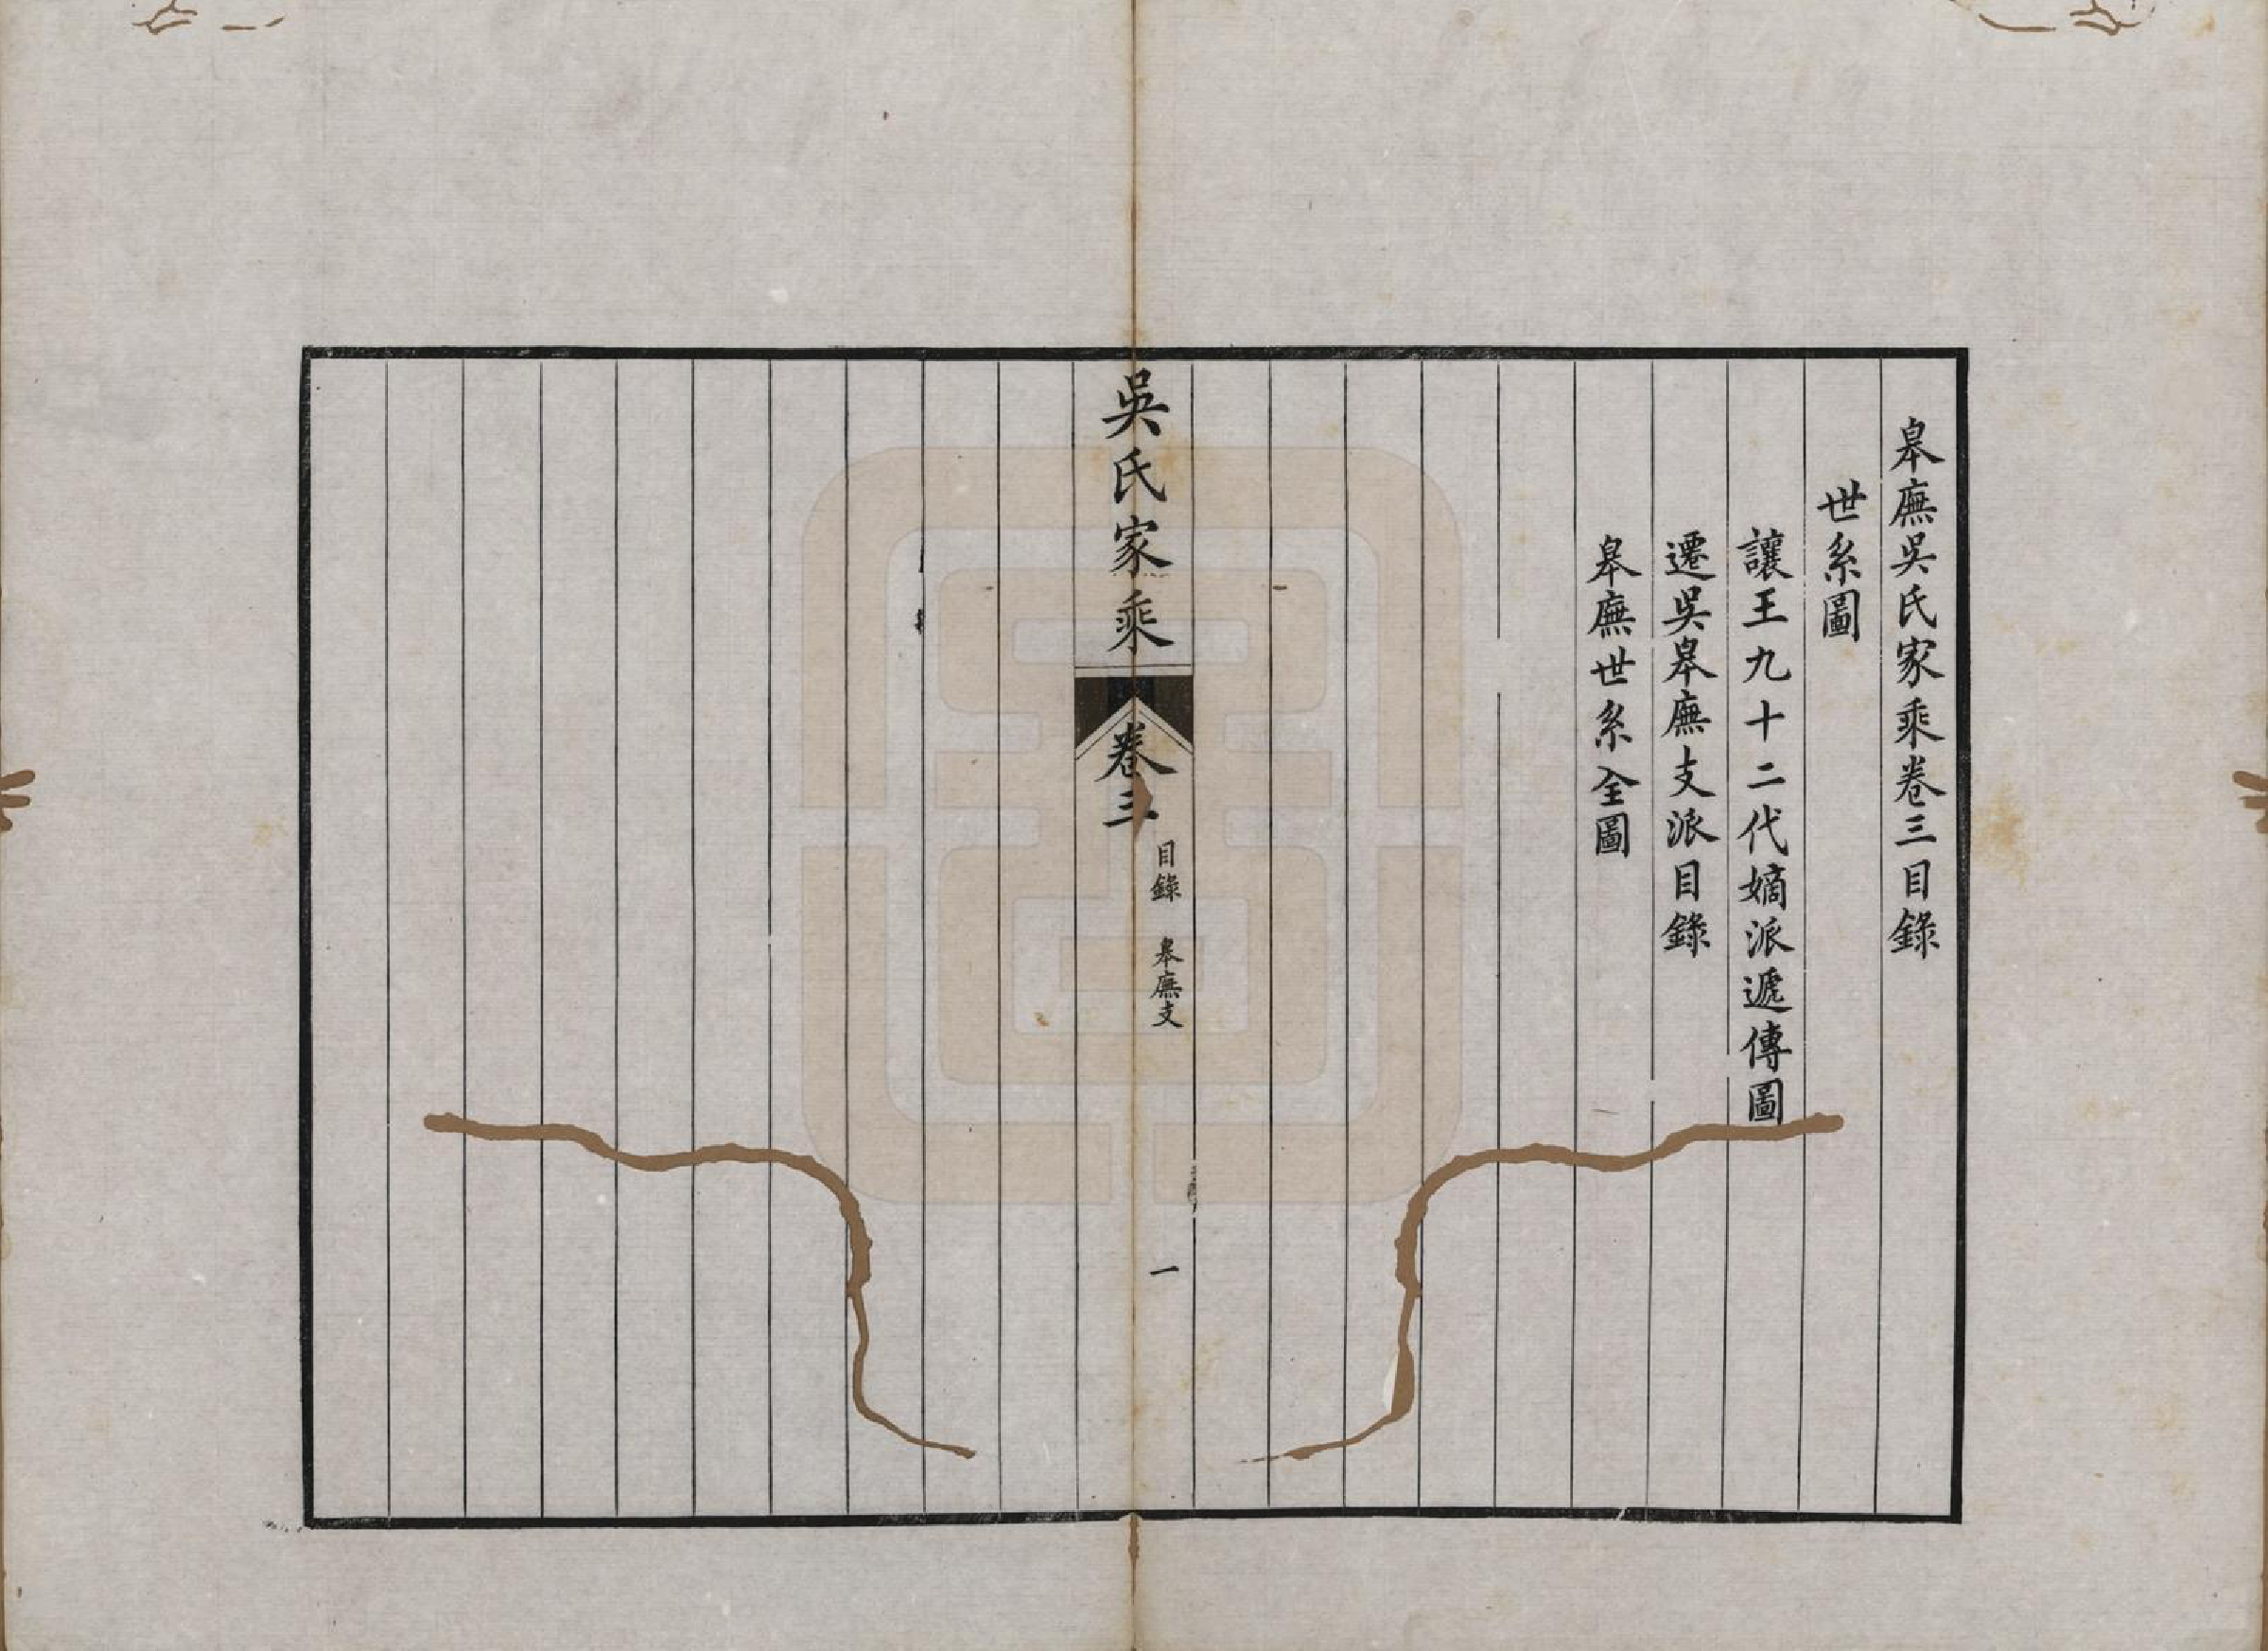 皋廡吳氏家乘卷三目錄
世系圖
讓王九十二代嫡派遞傳圖
遷吳皋廡支派目錄
皋廡世系全圖
吳氏家乘
卷三
目錄 皋廡支
一